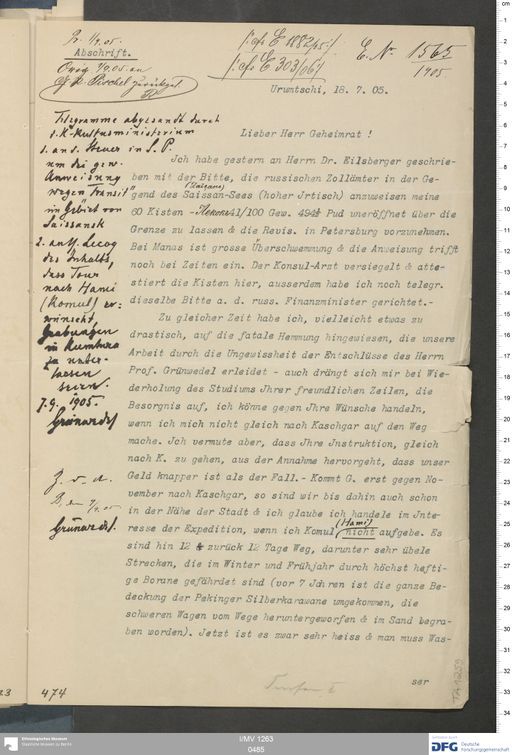 Pr. 1/9.05.
Abschrift.
Orig. 7/9.05 an
H. Pischel zurückges.
/: cfr E 1882/05 :/
/: cfr E 303/06 :/
E. Nr. 1565
1905
Urumtschi, 18. 7. 05.
Telegramme abgesandt durch
d. K. Kultusministerium
1. an d. Steuer in S. P.
um die gew.
Anweisung
wegen Transit
im Gebiet von
Saissansk
2. an H. Lecoq
des Inhalts,
dass Tour
nach Hami
(Komul) er-
wünscht,
Grabungen
in Kumtura
zu unter-
lassen
seien.
7.9. 1905.
Grünwedel
Z. d. A.
B. den 7/9.05
Grünwedel.
Lieber Herr Geheimrat !
Ich habe gestern an Herrn Dr. Eilsberger geschrie-
ben mit der Bitte, die russischen Zollämter in der Ge-
(Zaisans)
gend des Saissan-Sees (hoher Jrtisch) anzuweisen meine
60 Kisten - 41/100 Gew. 494½ Pud uneröffnet über die
Grenze zu lassen & die Revis. in Petersburg vorzunehmen.
Bei Manas ist grosse Überschwemmung & die Anweisung trifft
noch bei Zeiten ein. Der Konsul-Arzt versiegelt & atte-
stiert die Kisten hier, ausserdem habe ich noch telegr.
dieselbe Bitte a. d. russ. Finanzminister gerichtet.-
Zu gleicher Zeit habe ich, vielleicht etwas zu
drastisch, auf die fatale Hemmung hingewiesen, die unsere
Arbeit durch die Ungewissheit der Entschlüsse des Herrn
Prof. Grünwedel erleidet - auch drängt sich mir bei Wie-
derholung des Studiums Jhrer freundlichen Zeilen, die
Besorgnis auf, ich könne gegen Jhre Wünsche handeln,
wenn ich mich nicht gleich nach Kaschgar auf den Weg
mache. Jch vermute aber, dass Jhre Jnstruktion, gleich
nach K. zu gehen, aus der Annahme hervorgeht, dass unser
Geld knapper ist als der Fall.- Kommt G. erst gegen No-
vember nach Kaschgar, so sind wir bis dahin auch schon
in der Nähe der Stadt & ich glaube ich handele im Jnte-
(Hami)
resse der Expedition, wenn ich Komul nicht aufgebe. Es
sind hin 12 & zurück 12 Tage Weg, darunter sehr üble
Strecken, die im Winter und Frühjahr durch höchst hefti-
ge Borane gefährdet sind (vor 7 Jahren ist die ganze Be-
deckung der Pekinger Silberkarawane umgekommen, die
schweren Wagen vom Wege heruntergeworfen & im Sand begra-
ben worden). Jetzt ist es zwar sehr heiss & man muss Was-
ser
Turfan I
TA 1259
474
I/MV 1263
0485
Ethnologisches Museum
Staatliche Museen zu Berlin
DFG Deutsche
Forschungsgemeinschaft